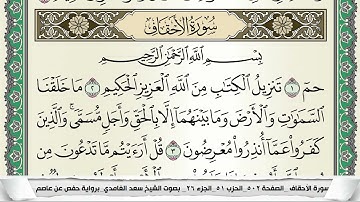 سُورَةُ الْأَحْقَافِ
بِسْمِ اللَّهِ الرَّحْمَٰنِ الرَّحِيمِ
حمٓ ١ تَنزِيلُ الْكِتَٰبِ مِنَ اللَّهِ الْعَزِيزِ الْحَكِيمِ ٢ مَا خَلَقْنَا
السَّمَٰوَٰتِ وَالْأَرْضَ وَمَا بَيْنَهُمَآ إِلَّا بِالْحَقِّ وَأَجَلٍ مُّسَمًّى ۚ وَالَّذِينَ
كَفَرُوا عَمَّآ أُنذِرُوا مُعْرِضُونَ ٣ قُلْ أَرَءَيْتُم مَّا تَدْعُونَ مِن
سورة الأحقاف الصفحة ٥٠٢ الحزب ٥١ الجزء ٢٦ بصوت الشيخ سعد الغامدي برواية حفص عن عاصم